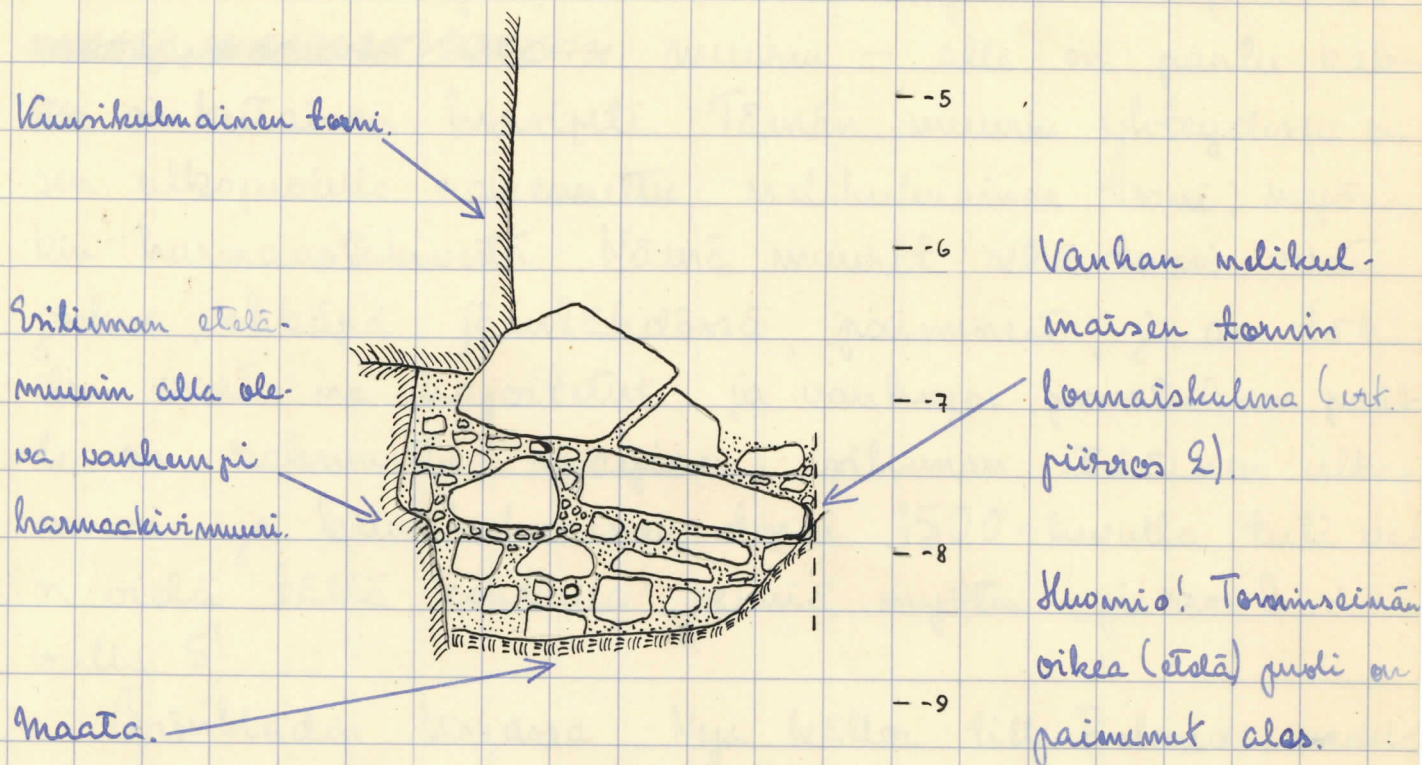 Kuusikulmainen torni.
Esilinnan etelä-
muurin alla ole-
va vanhempi
harmaakivimuuri.
Maata.
-5
-6
-7
-8
-9
Vanhan nelikul-
maisen tornin
lounaiskulma (vrt.
piirros 2).
Huomio! Torninseinän
oikea (etelä) puoli on
painunut alas.